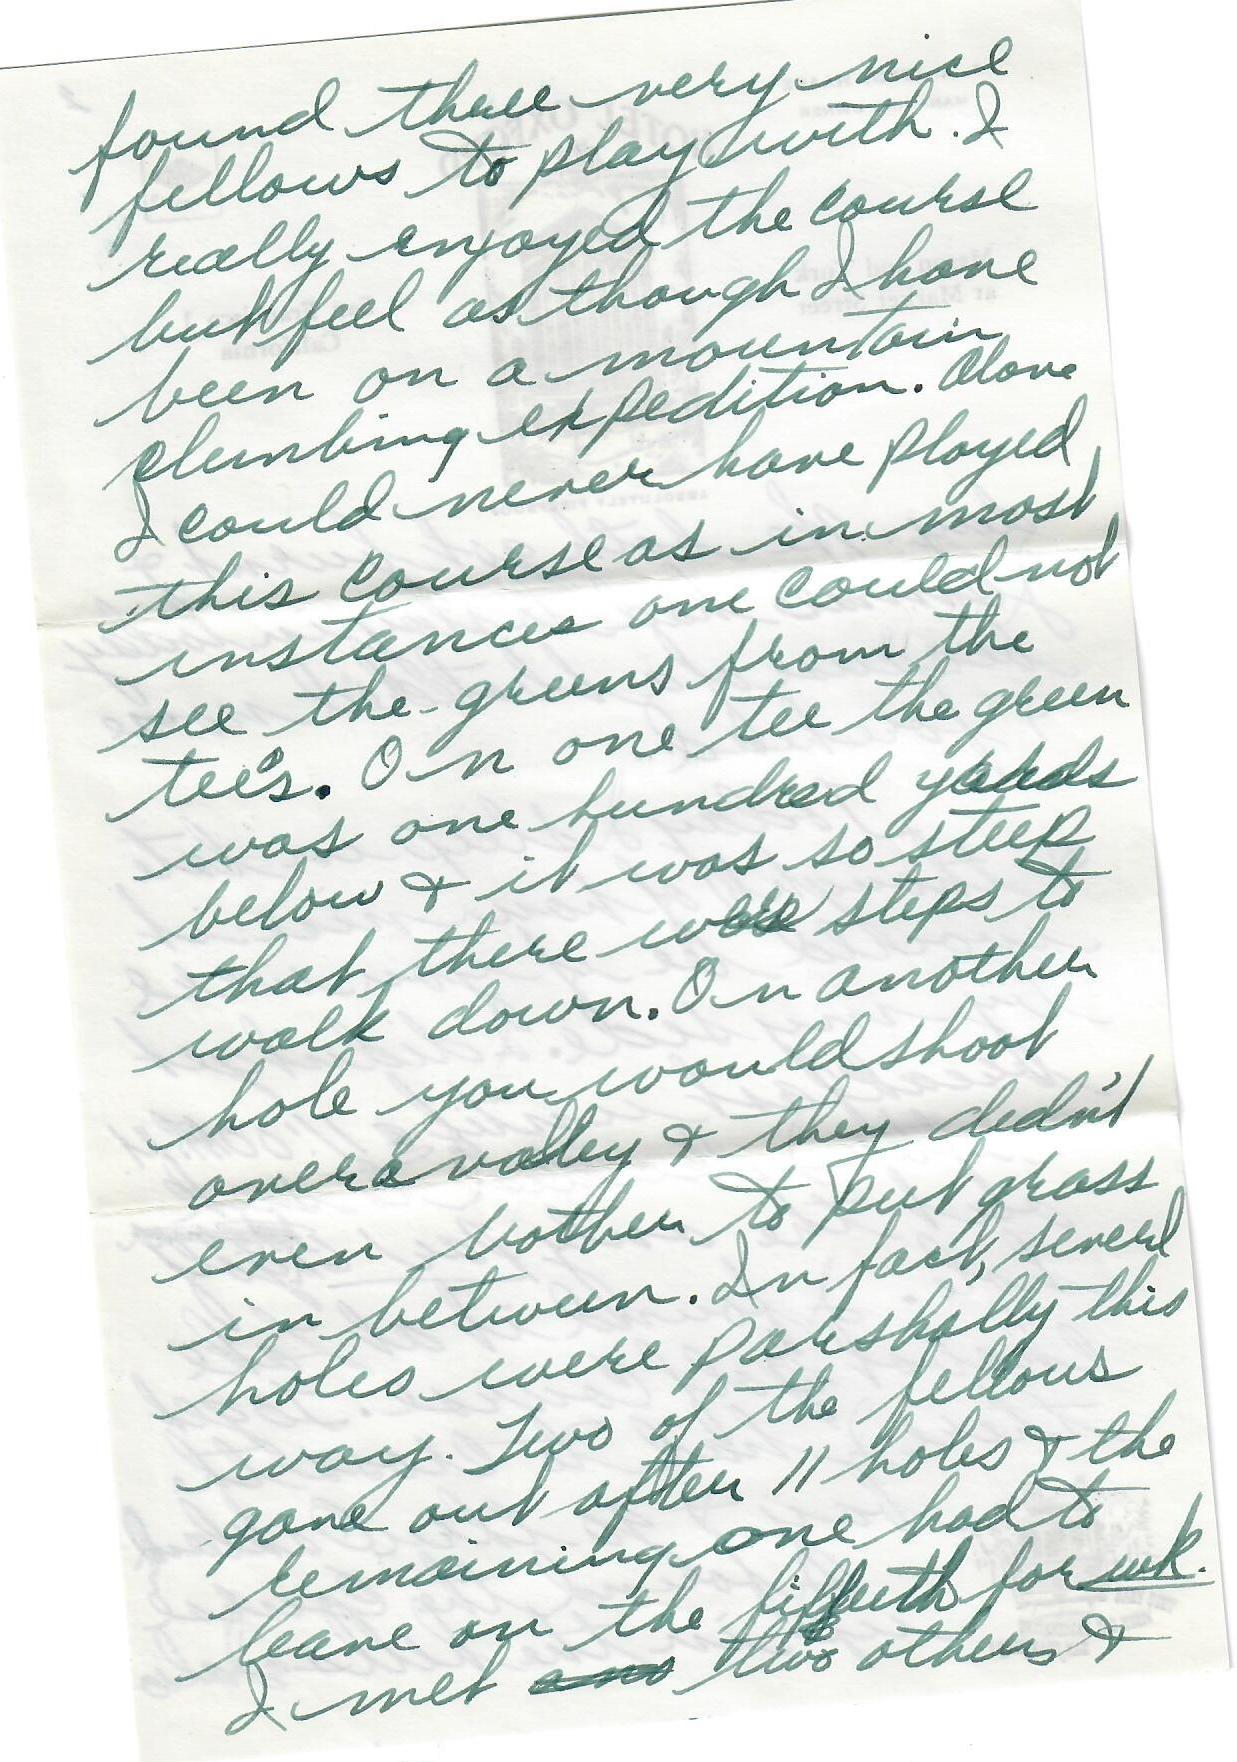 found three very nice
fellows to play with. I
really enjoyed the course
but feel as though I have
been on a mountain
climbing expedition. Alone
I could never have played
this course as in most
instances one could not
see the greens from the
tee's. On one tee the green
was one hundred yards
below & it was so steep
that there were steps to
walk down. On another
hole you would shoot
over a valley & they didn't
even bother to put grass
in between. In fact, several
holes were parshally this
way. Two of the fellows
gave out after 11 holes & the
remaining one had to
leave on the fifteeth for wk.
I met two others &